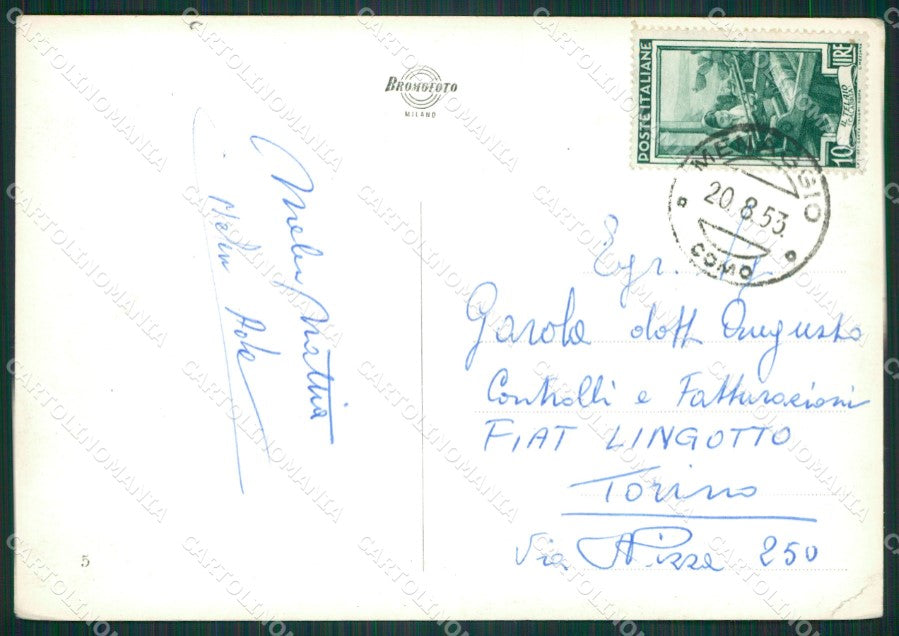 BROMOFOTO
MILANO
POSTE ITALIANE
LIRE
10
IL TELAIO
MENAGGIO
20.8.53
COMO
Egr. Sg.
Garola dott Augusto
Controlli e Fatturazioni
FIAT LINGOTTO
Torino
Via Nizza 250
Mattia
5
CARTOLINOMANIA